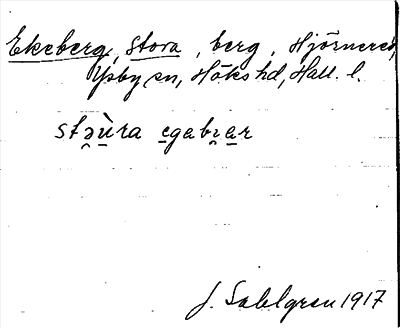 Ekeberg, Stora, berg, Hjörnered,
Ysby sn, Höks hd, Hall. l.
stə̯ùra egabɪ̯ar
J. Sahlgren 1917